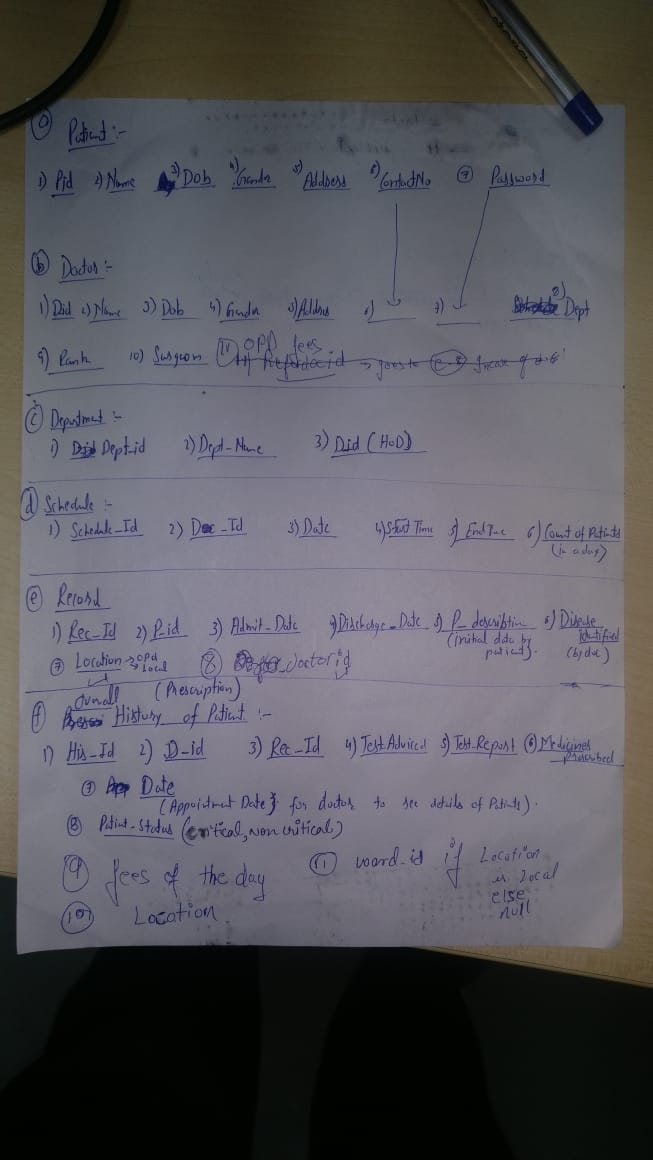 (a) Patient :-
1) Pid 2) Name 3) Dob 4) Gender 5) Address 6) ContactNo (7) Password
(b) Doctor :-
1) Did 2) Name 3) Dob 4) Gender 5) Address 6) ____ 7) ____ 8) Dept
9) Rank 10) Surgeon 11) OPD fees
(c) Department :-
1) Dept-id 2) Dept-Name 3) Did (HoD)
(d) Schedule :-
1) Schedule_Id 2) Doc_Id 3) Date 4) Start Time 5) End Time 6) Count of Patients
(in a day)
(e) Record
1) Rec_Id 2) P_id 3) Admit_Date 4) Discharge_Date 5) P_description 6) Disease
(initial data by Identified
patient). (by doc)
(7) Location → OPD
→ Local
(8) doctor id
Overall (Prescription)
(f) History of Patient :-
1) His_Id 2) D_id 3) Rec_Id 4) Test Adviced 5) Test_Report (6) Medicines
prescribed
(7) Date
(Appointment Date} for doctor to see details of Patients).
(8) Patient-Status (critical, non critical)
(9) fees of the day (11) ward_id if Location
is Local
else
null
(10) Location